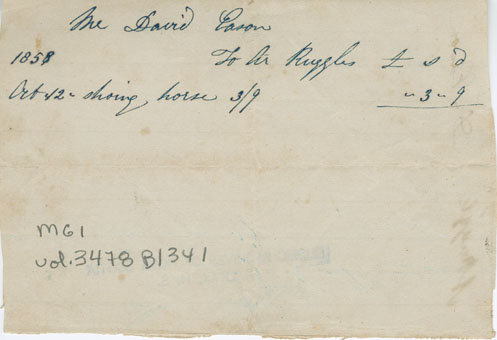 Mr David Eason
1858 To Wm Ruggles £ s d
Oct 12 " shoing horse 3/9 " 3 " 9
MG1
vol. 3478 B1341